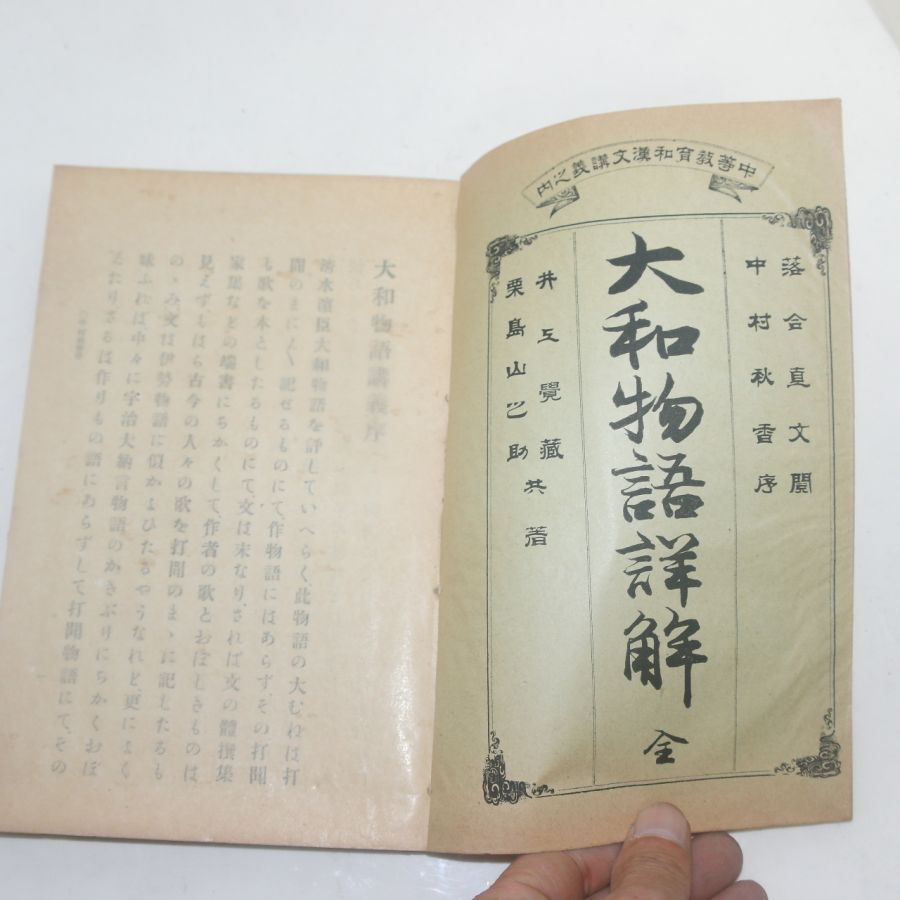 中等教育和漢文講義之内
落合直文閲
中村秋香序
大和物語詳解 全
井上覺藏共著
栗島山之助
大和物語講義序
清水濱臣大和物語を評していへらく、此物語の大むねは打
聞のまに〳〵記せるものにて、作物語にはあらず、その打聞
も歌を本としたるものにて文は末なり、されば文の體撰集
家集などの端書にちかくして、作者の歌とおぼしきものは
見えずもはら古今の人々の歌を打聞のまゝに記したるも
のゝみ文は伊勢物語に似かよひたるやうなれど、更によく
味ふれば、中々に宇治大納言物語のかきぶりにちかくおぼ
えたりさるは作りもの語にあらずして打聞物語にて、その